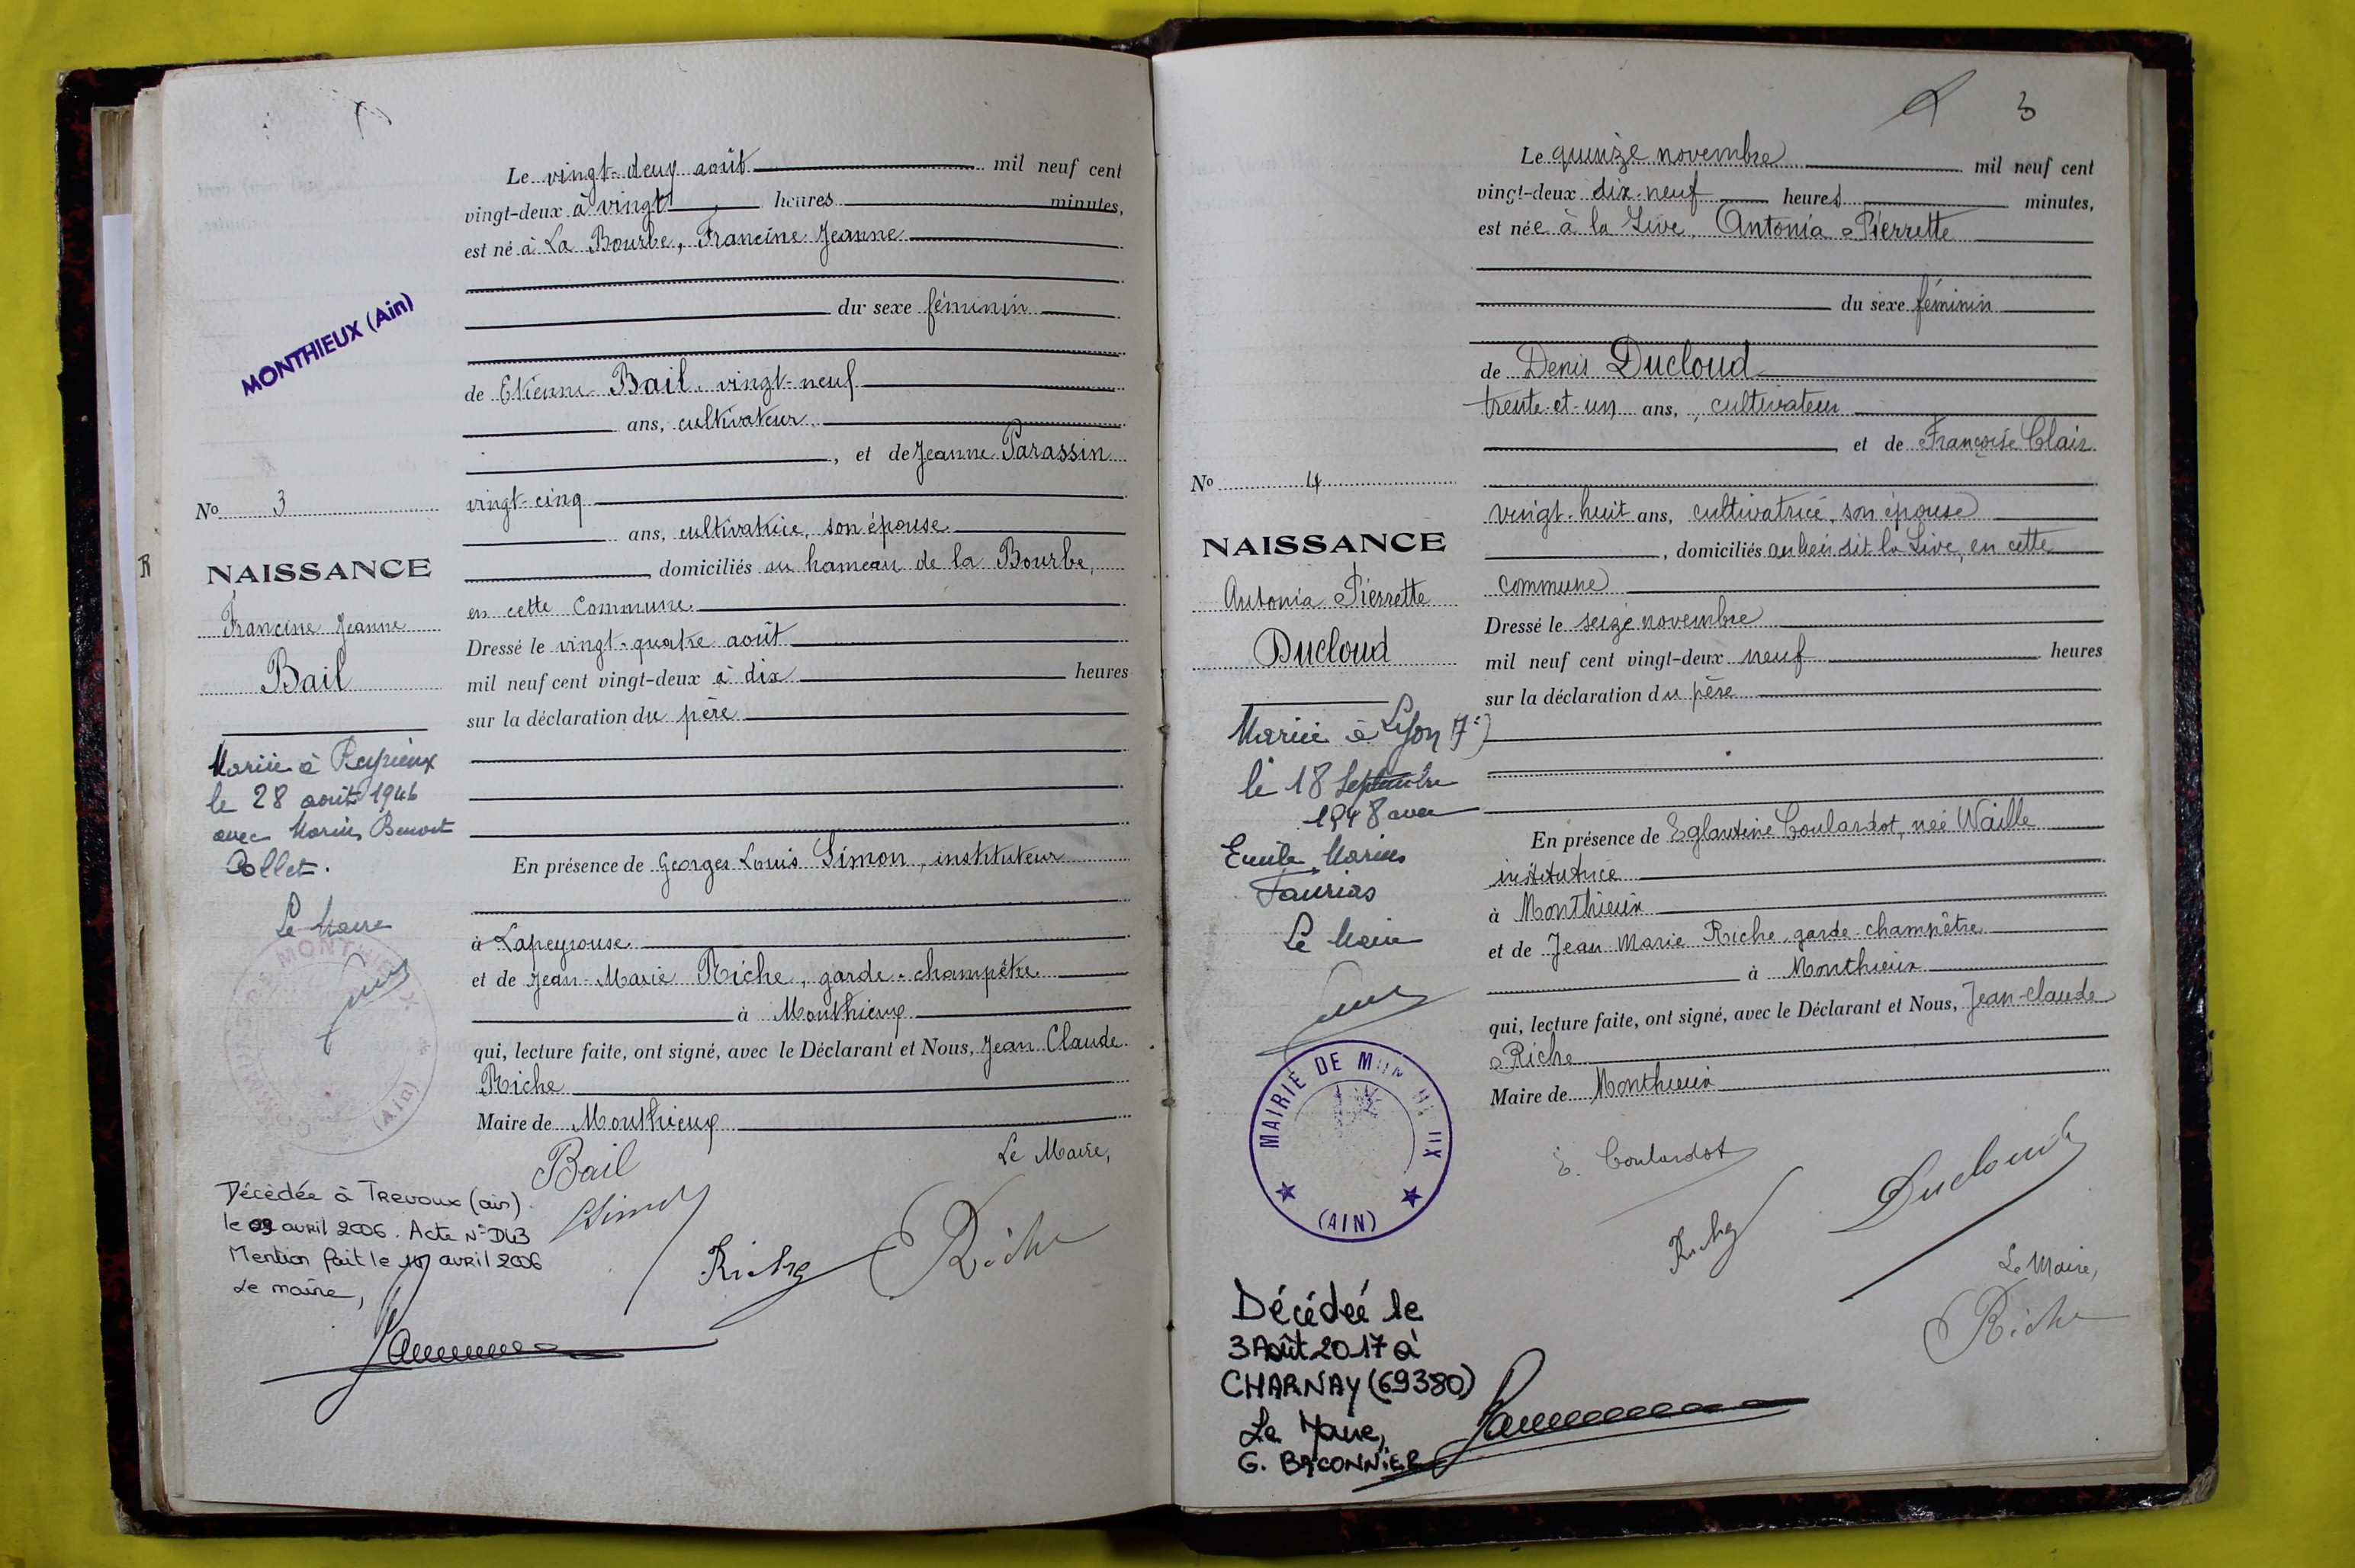 MONTHIEUX (Ain)
Le vingt-deux août mil neuf cent
vingt-deux à vingt heures minutes,
est né à La Bourbe, Francine Jeanne
du sexe féminin
de Etienne Bail vingt-neuf
ans, cultivateur
, et de Jeanne Parassin
vingt-cinq
ans, cultivatrice, son épouse
, domiciliés au hameau de la Bourbe,
en cette Commune
Dressé le vingt-quatre août
mil neuf cent vingt-deux à dix heures
sur la déclaration du père
En présence de Georges Louis Simon, instituteur
à Lapeyrouse
et de Jean-Marie Riche, garde-champêtre
à Monthieux
qui, lecture faite, ont signé, avec le Déclarant et Nous, Jean Claude
Riche
Maire de Monthieux
Le Maire,
Bail
Simon
Riche
Riche
R
No 3
NAISSANCE
Francine Jeanne
Bail
Mariée à Reyrieux
le 28 août 1946
avec Marius Benoit
Collet.
Le Maire
(Ain)
Décédée à Trevoux (ain).
le avril 2006. Acte N°
Mention fait le avril 2006
Le maire,
3
Le quinze novembre mil neuf cent
vingt-deux dix-neuf heures minutes,
est née à la Live, Antonia Pierrette
du sexe féminin
de Denis Ducloud
trente-et-un ans, cultivateur
et de Françoise Clair
vingt-huit ans, cultivatrice, son épouse
, domiciliés au lieu dit la Live, en cette
commune
Dressé le seize novembre
mil neuf cent vingt-deux neuf heures
sur la déclaration du père
En présence de Eglantine Coulardot, née Waille
institutrice
à Monthieux
et de Jean Marie Riche, garde-champêtre
à Monthieux
qui, lecture faite, ont signé, avec le Déclarant et Nous, Jean-Claude
Riche
Maire de Monthieux
E. Coulardot
Ducloud
Riche
Le Maire,
Riche
No 4
NAISSANCE
Antonia Pierrette
Ducloud
Mariée à Lyon (7e)
le 18 Septembre
1948 avec
Emile Marius
Faurias
Le Maire
MAIRIE DE MONTHIEUX
(AIN)
Décédée le
3 Août 2017 à
CHARNAY (69380)
Le Maire,
G. BACONNIER